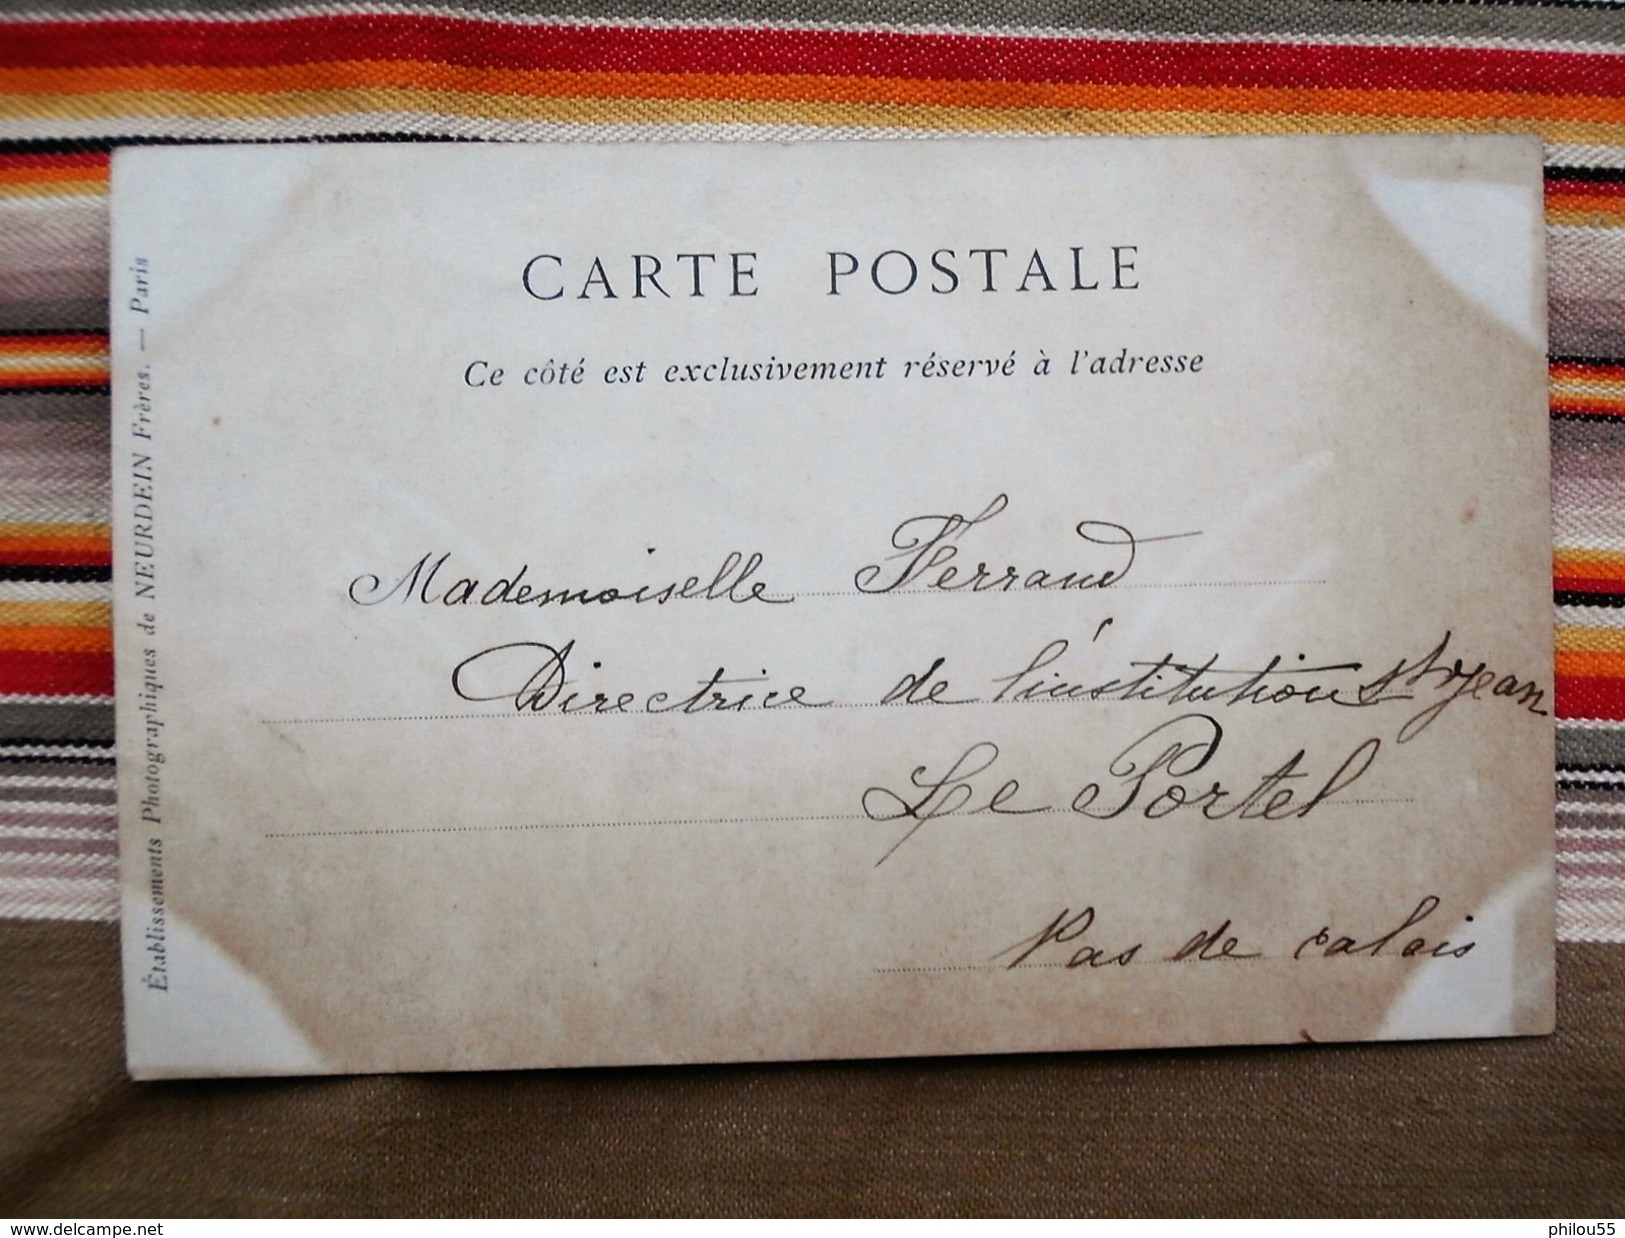 CARTE POSTALE
Ce côté est exclusivement réservé à l'adresse
Mademoiselle Ferrand
Directrice de l'institution St Jean
Le Portel
Pas de calais
Établissements Photographiques de NEURDEIN Frères. — Paris
www.delcampe.net
philou55